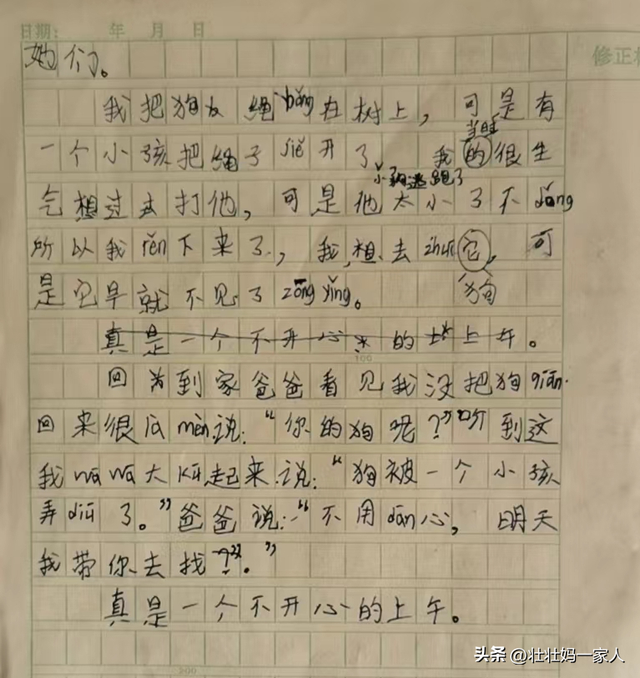 日期： 年 月 日
修正
她们。
我把狗友绳bǎng在树上，可是有
当时
一个小孩把绳子jiě开了 我的很生
小狗逃跑了
气想过去打他，可是他太小了不dǒng
所以我rěn下来了，我想去zhuī它，可
是它早就不见了zōng yǐng。 狗
真是一个不开心的上午。
100
回到家爸爸看见我没把狗qiān
回来很瓜mèn说：“你的狗呢？”听到这
我wa wa大kū起来说：“狗被一个小孩
弄diū了。”爸爸说：“不用dān心，明天
我带你去找？。”
真是一个不开心的上午。
200
头条 @壮壮妈一家人